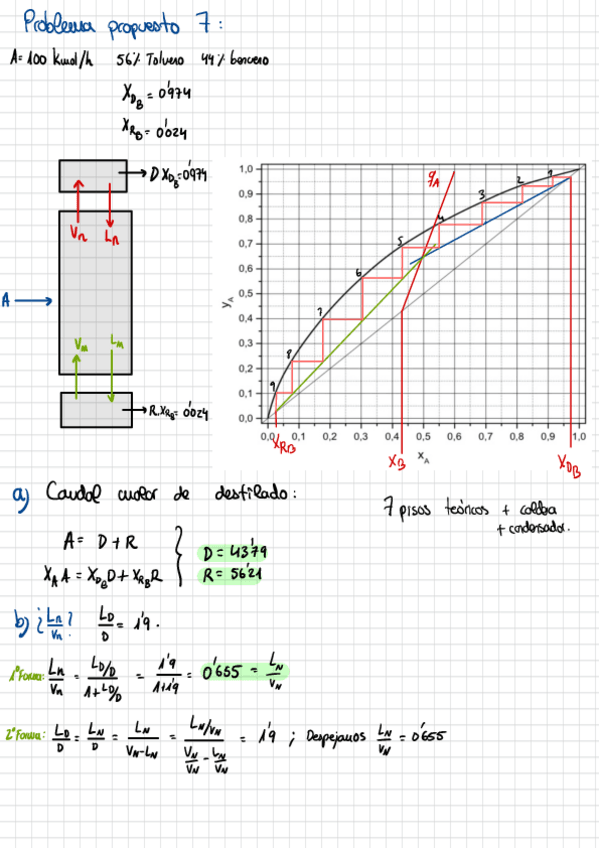 Problema propuesto 7:
A = 100 kmol/h    56% Tolueno    44% benceno
X_{D_B} = 0'974
X_{R_B} = 0'024
D X_{D_B} = 0'974
V_n    L_n
A
V_m    L_m
R. X_{R_B} = 0'024
1,0
0,9
0,8
0,7
0,6
0,5
0,4
0,3
0,2
0,1
0,0
y_A
q_A
1
2
3
4
5
6
7
8
9
0,0 0,1 0,2 0,3 0,4 0,5 0,6 0,7 0,8 0,9 1,0
x_A
X_{R_B}    X_B    X_{D_B}
a) Caudal molar de destilado:
7 pisos teóricos + caldera
+ condensador.
A = D + R
X_A A = X_{D_B} D + X_{R_B} R
D = 43'79
R = 56'21
b) ¿L_n/V_n? L_D/D = 1'9.
1ª Forma: L_n/V_n = (L_D/D)/(1 + L_D/D) = 1'9/(1+1'9) = 0'655 = L_N/V_N
2ª Forma: L_D/D = L_N/D = L_N/(V_N - L_N) = (L_N/V_N)/(V_N/V_N - L_N/V_N) = 1'9 ; Despejamos L_N/V_N = 0'655